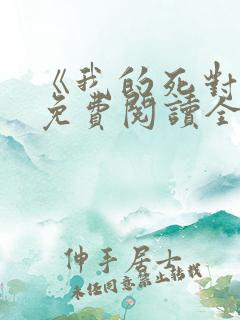 《我的死對
免費閱讀全
伸手居士
未经同意禁止转载